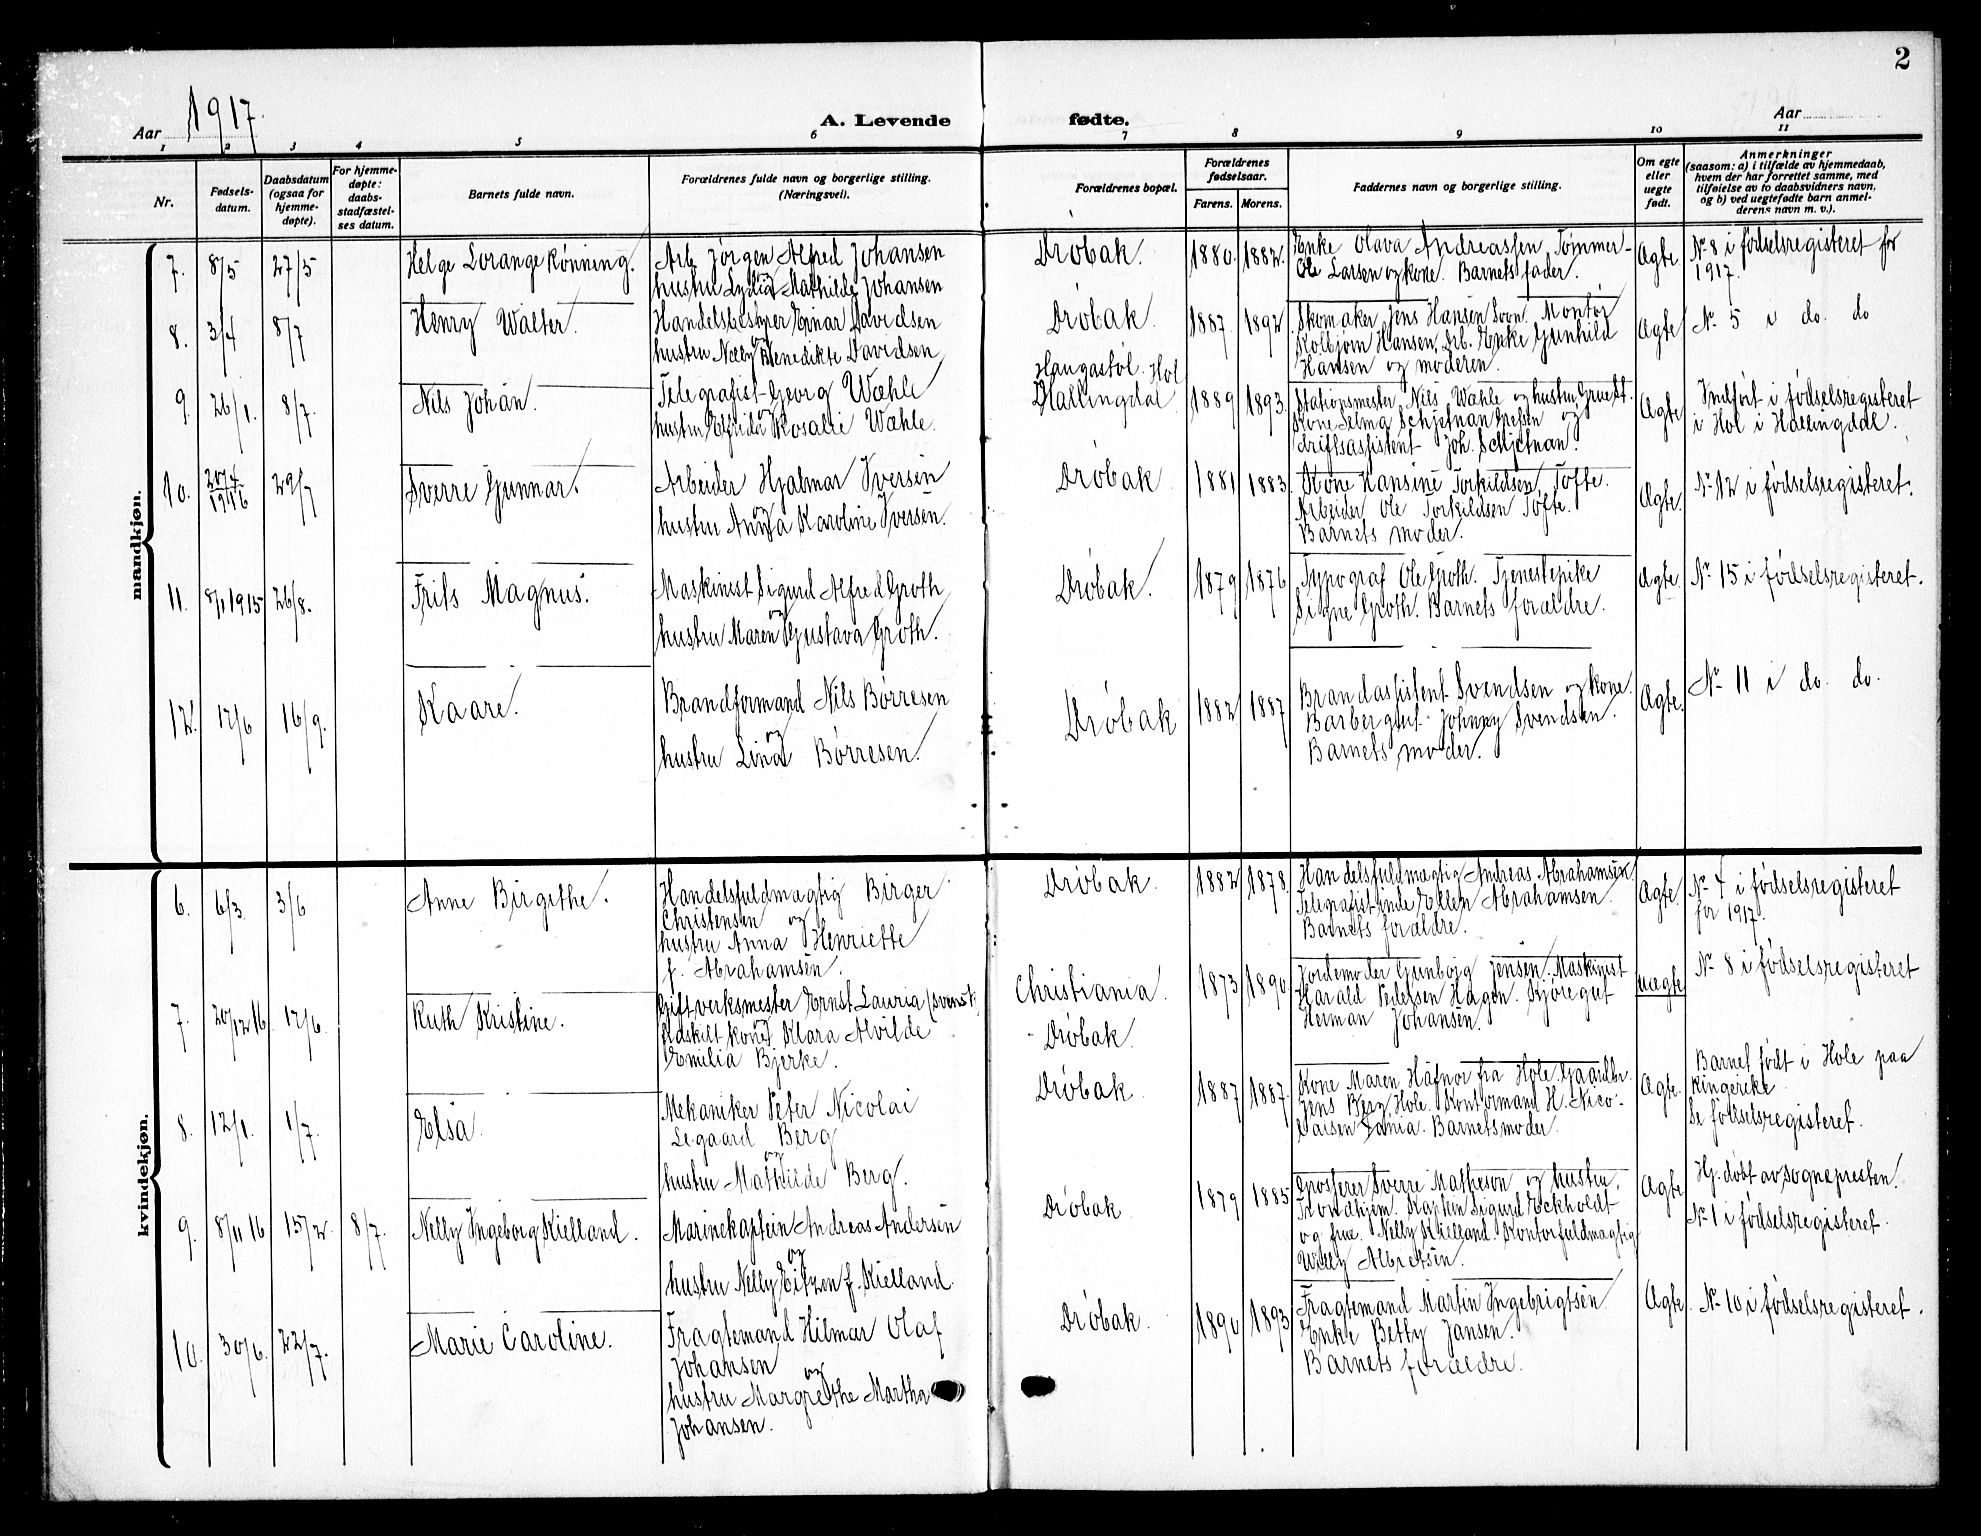 2
Aar 1917.
A. Levende fødte.
Aar
1 2 3 4 5 6 7 8 9 10 11
Nr.
Fødsels-
datum.
Daabsdatum
(ogsaa for
hjemme-
døpte).
For hjemme-
døpte:
daabs-
stadfæstel-
ses datum.
Barnets fulde navn.
Forældrenes fulde navn og borgerlige stilling.
(Næringsvei).
Forældrenes bopæl.
Forældrenes
fødselsaar.
Farens. Morens.
Faddernes navn og borgerlige stilling.
Om egte
eller
uegte
født.
Anmerkninger
(saasom: a) i tilfælde av hjemmedaab,
hvem der har forrettet samme, med
tilføielse av to daabsvidners navn,
og b) ved uegtefødte barn anmel-
derens navn m. v.).
mandkjøn.
7. 8/5 27/5
Helge Lorange Rønning.
Arb. Jørgen Alfred Johansen
og
hustru Lydia Mathilde Johansen
Drøbak.
1880. 1882.
Enke Olava Andreassen Tømmer-
Ole Larsen og kone. Barnets fader.
Ægte
No 8 i fødselsregisteret for
1917.
8. 3/4 8/7
Henry Walter.
Handelsbestyrer Einar Davidsen
og
hustru Nelly Benedikte Davidsen
Drøbak.
1887. 1892
Skomaker Jens Hansen Svon. Montør
Kolbjørn Hansen, Drb. Enke Gunhild
Hansen og moderen.
Ægte
No 5 i do. do
9. 26/1. 8/7.
Nils Johan.
Telegrafist Georg Wæhle
og
hustru Elfrida Rosalie Wæhle.
Haugastøl. Hol
Hallingdal
1889 1893.
Stationsmester Nils Wæhle og hustru
Kone Selma Schjetnan og
driftsassistent Joh. Schjetnan.
Ægte
Indført i fødselsregisteret
i Hol i Hallingdal.
10. 20/4 1916 29/7
Sverre Gunnar.
Arbeider Hjalmar Iversen
og
hustru Anna Karoline Iversen.
Drøbak
1881 1883.
Kone Hansine Torkildsen Tofte.
Arbeider Ole Torkildsen Tofte.
Barnets moder.
Ægte.
No 12 i fødselsregisteret.
11. 8/1 1915 26/8.
Frits Magnus.
Maskinist Sigurd Alfred Groth
og
hustru Maren Gustava Groth.
Drøbak.
1879 1876
Typograf Ole Groth. Tjenestepike
Signe Groth. Barnets forældre.
Ægte.
No 15 i fødselsregisteret.
12. 12/6 16/9.
Kaare.
Brandformand Nils Børresen
og
hustru Lina Børresen.
Drøbak
1882 1887
Brandassistent Svendsen og kone.
Barbergut Johnny Svendsen.
Barnets moder.
Ægte.
No 11 i do. do.
kvindekjøn.
6. 6/3 3/6
Anne Birgithe.
Handelsfuldmægtig Birger
Christensen og
hustru Anna Henriette
f. Abrahamsen.
Drøbak.
1882 1878
Handelsfuldmægtig Andreas Abrahamsen
Telegrafistinde Ellen Abrahamsen.
Barnets forældre.
Ægte.
No 4 i fødselsregisteret
for 1917.
7. 20/12 16 12/6.
Ruth Kristine.
Gift verksmester Ernst Lauria (svensk)
Fraskilt kone Klara Alvilde
Emilia Bjerke.
Christiania.
Drøbak.
1873 1890
Jordemoder Gunborg Jensen. Maskinist
Harald Pedersen Hagen. Kjøregut
Herman Johansen.
uægte
No 8 i fødselsregisteret
8. 12/1. 1/7.
Elsa.
Mekaniker Peter Nicolai
Legaard Berg
og
hustru Mathilde Berg.
Drøbak
1887 1887.
Kone Maren Hafnor fra Hole. Gaardbr.
Jens Berg Hole. Kontormand H. Nico-
laisen Barnets moder.
Ægte.
Barnet født i Hole paa
Ringerike.
Se fødselsregisteret.
9. 8/11 16 15/2 8/7.
Nelly Ingeborg Kielland.
Marinekaptein Andreas Andersen
og
hustru Nelly Eitzen f. Kielland.
Drøbak
1879 1885
Grosserer Sverre Matheson og hustru,
Trondhjem. Kaptein Sigurd Eckholdt
og frue. Nelly Kielland. Kontorfuldmægtig
Willy Albretsen.
Ægte
Hj. døbt av sognepresten.
No 1 i fødselsregisteret.
10. 30/6. 22/7.
Marie Caroline.
Fragtemand Hilmar Olaf
Johansen
og
hustru Margrethe Martha
Johansen.
Drøbak.
1890 1893
Fragtemand Martin Ingebrigtsen
Enke Betty Jansen.
Barnets forældre.
Ægte
No 10 i fødselsregisteret.